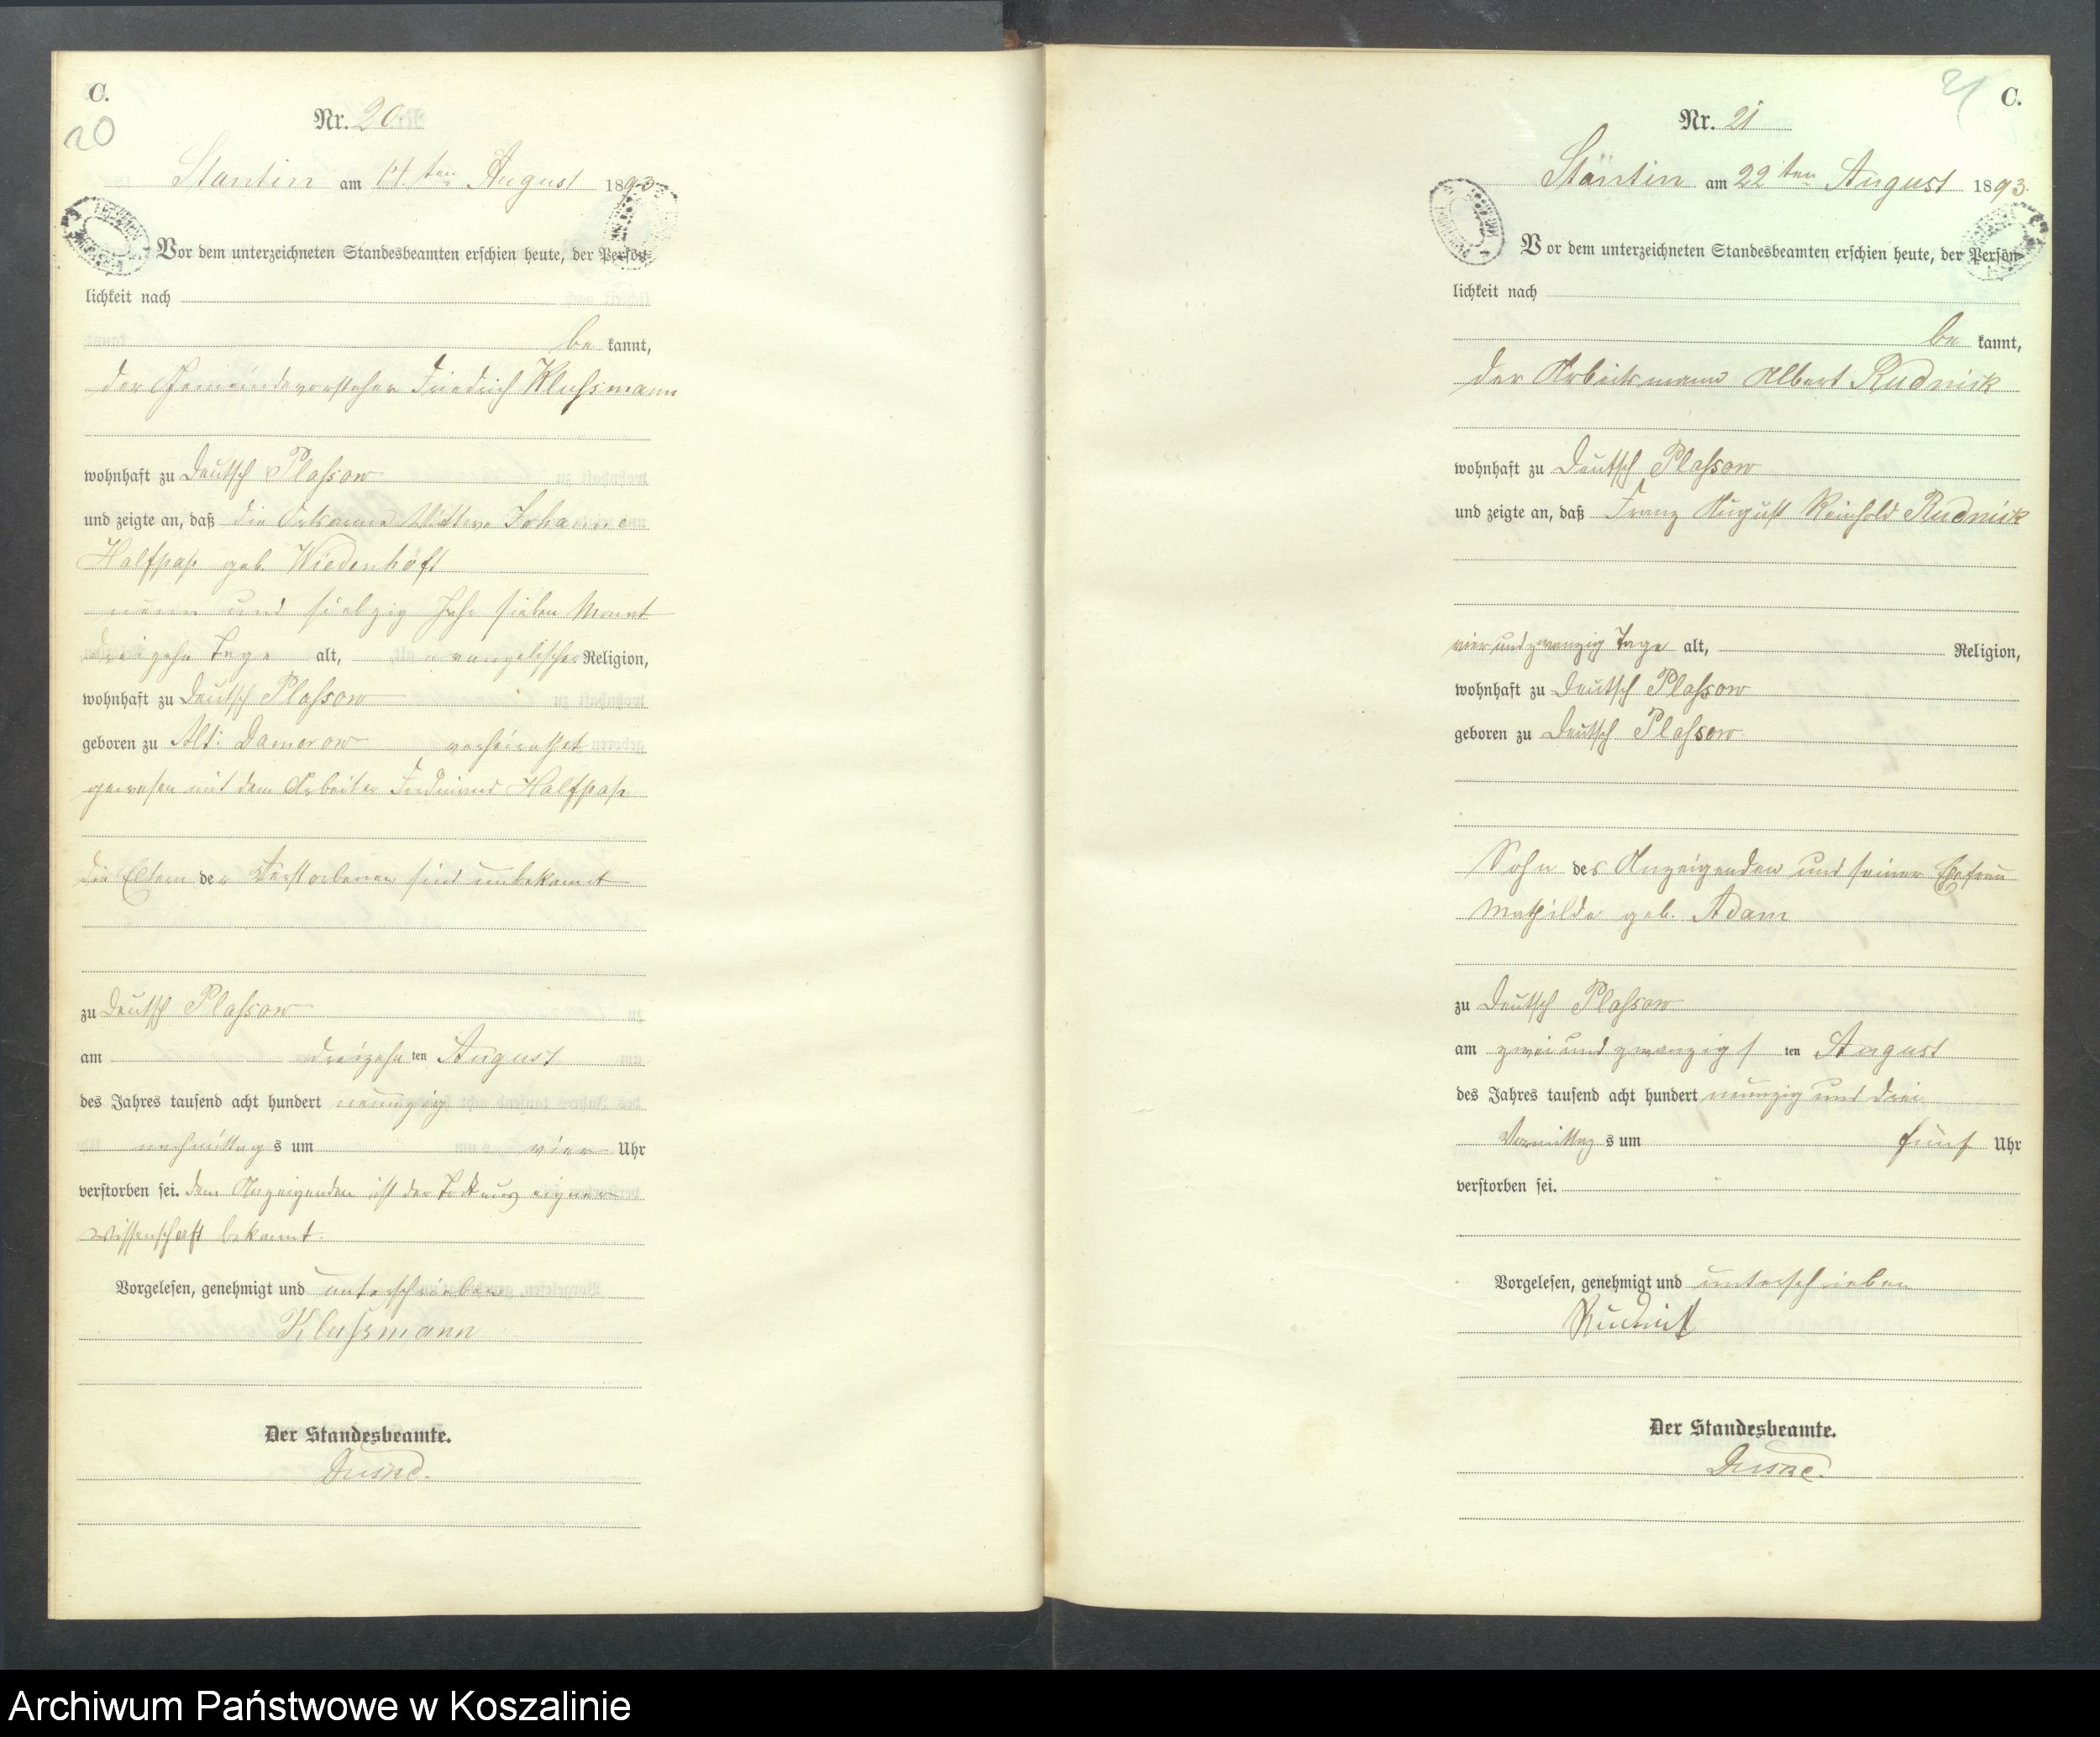 C.
20
Nr. 20.
Stantin am 14ten August 1893
Vor dem unterzeichneten Standesbeamten erschien heute, der Persön-
lichkeit nach
be kannt,
der Gemeindevorsteher Friedrich Klußmann
wohnhaft zu Deutsch Plassow
und zeigte an, daß die Ortsarme Wittwe Johanne
Halfpap geb. Wiedenhöft
neun und siebzig Jahr sieben Monat
dreizehn Tage alt, evangelischer Religion,
wohnhaft zu Deutsch Plassow
geboren zu Alt: Damerow verheirathet
gewesen mit dem Arbeiter Ferdinand Halfpap
die Eltern der Verstorbenen sind unbekannt
zu Deutsch Plassow
am dreizehn ten August
des Jahres tausend acht hundert neunzig
nachmittag s um vier Uhr
verstorben sei. dem Anzeigenden ist der Tod aus eigner
Wissenschaft bekannt.
Vorgelesen, genehmigt und unterschrieben
Klußmann
Der Standesbeamte.
C.
21
Nr. 21
Stantin am 22ten August 1893.
Vor dem unterzeichneten Standesbeamten erschien heute, der Persön-
lichkeit nach
be kannt,
der Arbeitsmann Albert Rudnick
wohnhaft zu Deutsch Plassow
und zeigte an, daß Franz August Reinhold Rudnick
vier und zwanzig Tage alt, Religion,
wohnhaft zu Deutsch Plassow
geboren zu Deutsch Plassow
Sohn des Anzeigenden und seiner Ehefrau
Mathilde geb. Adam
zu Deutsch Plassow
am zwei und zwanzigs ten August
des Jahres tausend acht hundert neunzig und drei
Vormittag s um fünf Uhr
verstorben sei.
Vorgelesen, genehmigt und unterschrieben
Rudnick
Der Standesbeamte.
Archiwum Państwowe w Koszalinie